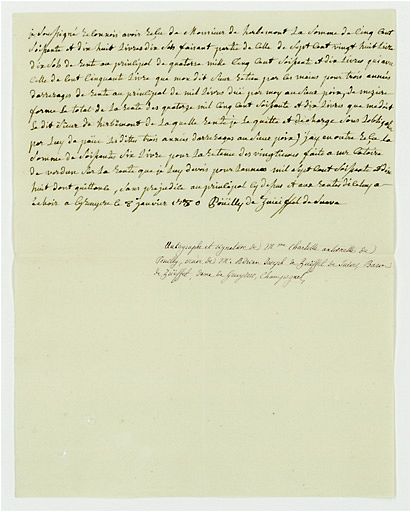 je soussigné reconnois avoir reçu de Monsieur de herbemont La Somme de Cinq Cent
Soissante et dix huit Livres dix Sols faisant partie de Celle de Sept Cent vingt huit Livre
dix Sols de rente au principal de quatorze mile Cinq Cent Soissante et dix Livres qu'avec
Celle de Cent Cinquant Livre que mondit Sieur retien par Ses mains pour trois année
darrerages de rente au principal de mil Livre duë par moy au Sieur
forme Le total de La rente des quatorze mil Cinq Cent Soissante et dix Livres que me doit
Ledit Sieur de herbemont de Laquelle rente je Le quitte et decharge Sous
par Luy de Les dittes trois années darrerages au Sieur j'ay encore reçu La
Somme de Soissante Six Livre pour La retenue des vingtiemes faits a mr
de verdun Sur La rente que je Luy devois pour Lannée mil Sept Cent Soissante et dix
huit dont quittance, Sans prejudice au principal et aux rentes de
a echoir a le 8 janvier 1780 Pouilly de
Autographe et signature de Mme Charlotte antoinette de
Pouilly, veuve de Mr Adrien Joseph de de Baron
de dame de Champagne,